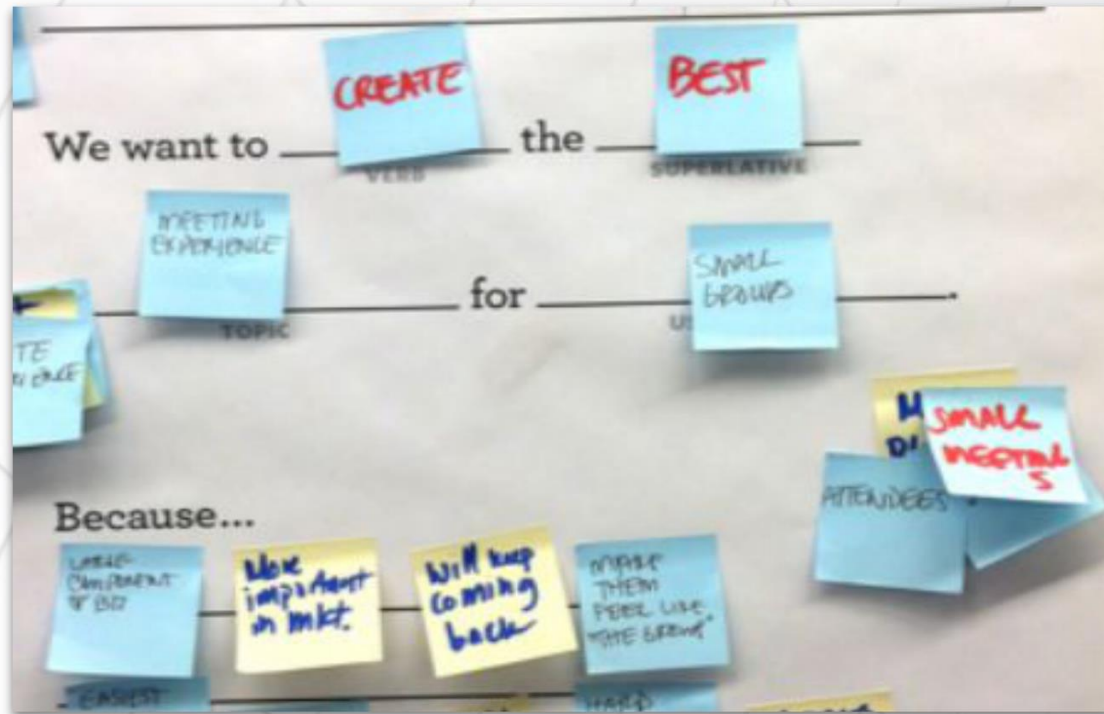 CREATE
BEST
We want to the
VERB
SUPERLATIVE
MEETING
EXPERIENCE
SMALL
GROUPS
for .
TOPIC
US
TE
SMALL
MEETING
S
ATTENDEES
Because...
LARGE
COMPONENT
OF BIZ
More
important
in mkt.
Will keep
coming
back
MAKE
THEM
FEEL LIKE
"THE GROUP"
EASIEST
HARD